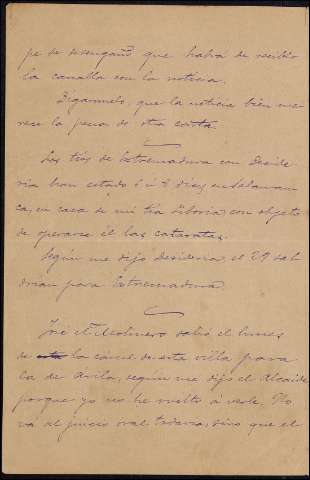 pe de desengaño que habrá de recibir
la canalla con la noticia.
Dígamelo, que la noticia bien me-
rece la pena de otra carta.
Los tíos de Extremadura con Deside-
ria han estado 5 ó 6 días en Salaman-
ca, en casa de mi tía Liboria, con objeto
de operarse él las cataratas.
Según me dijo Desideria, el 29 sal-
drían para Extremadura.
José el Molinero salió el lunes
de la cárcel de esta villa para
la de Ávila, según me dijo el Alcaide
porque yo no he vuelto á verle. No
vá al juicio oral todavía, sino que el